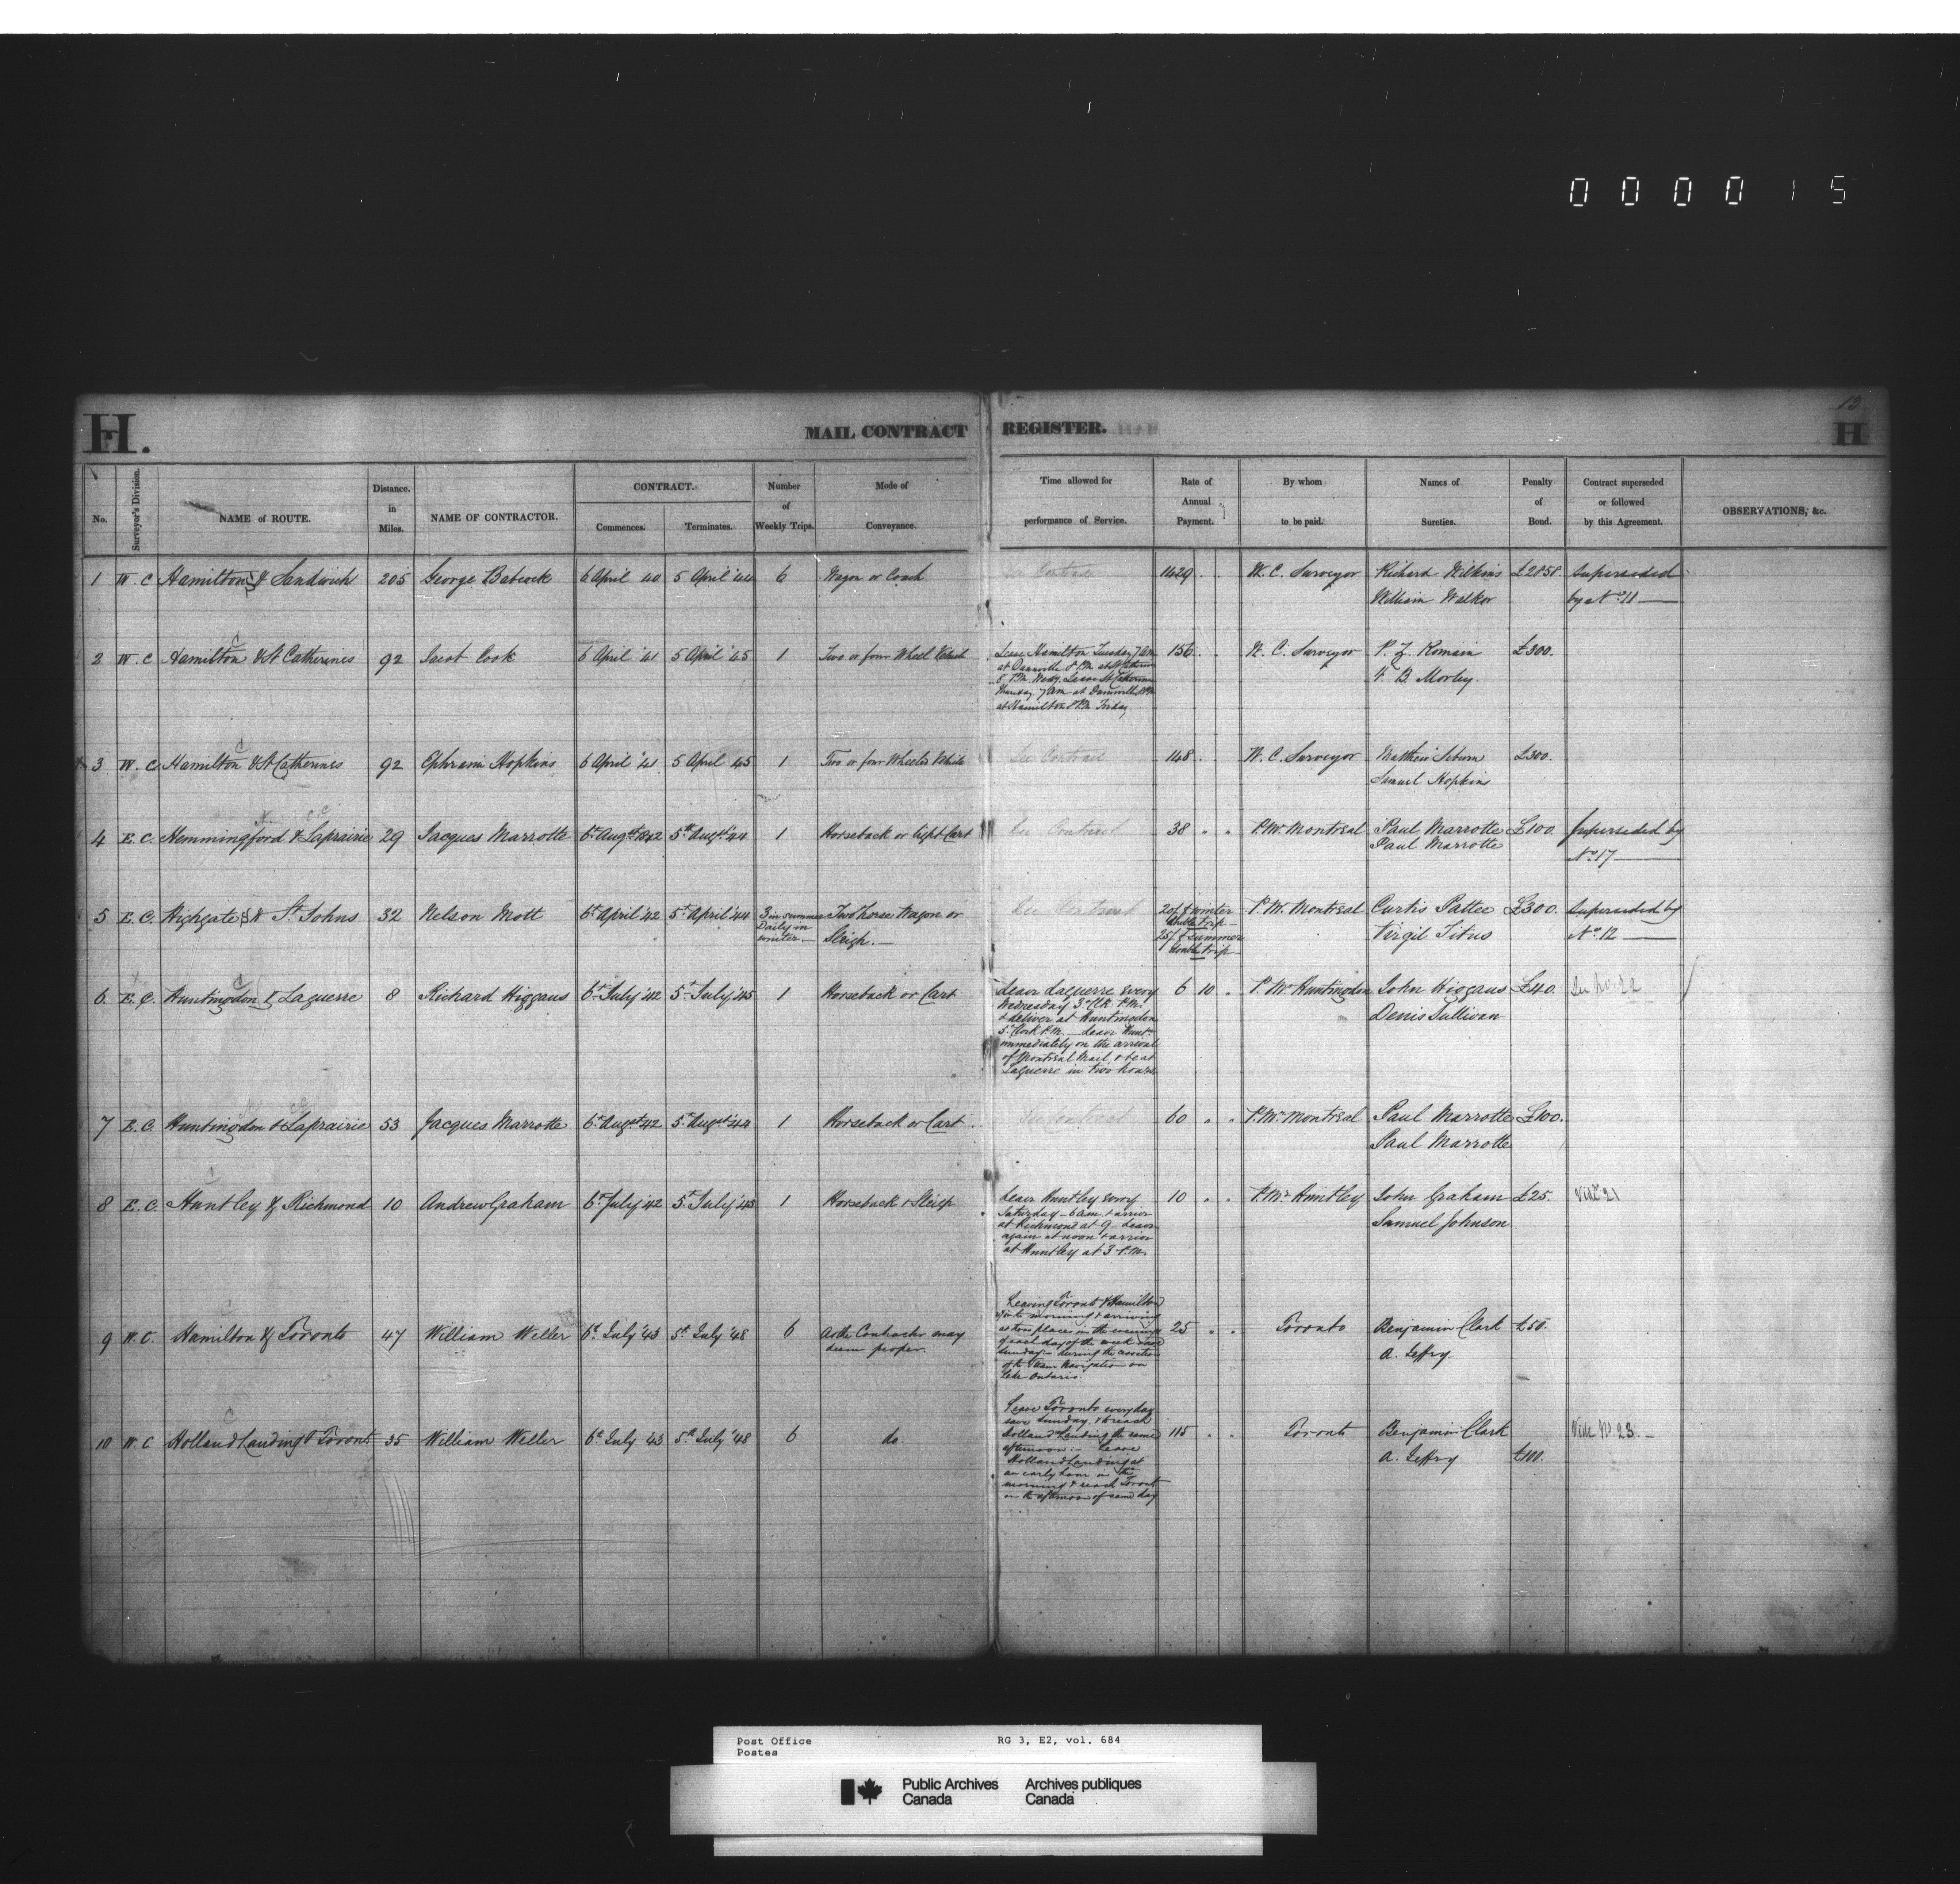 000015
13
H.
MAIL CONTRACT REGISTER.
H
No.
Surveyor's Division.
NAME of ROUTE.
Distance. in Miles.
NAME OF CONTRACTOR.
CONTRACT.
Commences.
Terminates.
Number of Weekly Trips.
Mode of Conveyance.
Time allowed for performance of Service.
Rate of Annual Payment.
By whom to be paid.
Names of Sureties.
Penalty of Bond.
Contract superseded or followed by this Agreement.
OBSERVATIONS, &c.
1 W. C Hamilton & Sandwich 205 George Babcock 6 April 40 5 April '44 6 Wagon or Coach See Contract 1429 . . W. C. Surveyor Richard Wilkins £2858 Superseded
William Walker by No. 11
2 W. C Hamilton & St Catherines 92 Jacob Cook 6 April '41 5 April '45 1 Two or four Wheel Vehicle Leave Hamilton Tuesday 7 am 156 . . W. C. Surveyor P. Z. Romain £300.
at Dannville 8 P.M. at St Catherines
8 P.M. Wedy. Leave St Catherines
B. Morley.
Thursday 7 am at Dannville 8 P.M
at Hamilton 8 P.M. Friday
3 W. C Hamilton & St Catherines 92 Ephraim Hopkins 6 April '41 5 April 45 1 Two or four Wheeled Vehicle See Contract 148 . . W. C. Surveyor Matthew £300.
Samuel Hopkins
4 E. C. Hemmingford & Laprairie 29 Jacques Marrotte 6th Augst 1842 5th Augst '44 1 Horseback or light Cart See Contract 38 " " P. Mr. Montreal Paul Marrotte £100. Superseded by
Paul Marrotte No. 17
5 E. C. Highgate & St. Johns 32 Nelson Mott 6th April '42 5th April '44 3 in summer Two horse Wagon or See Contract 20/ winter P. Mr. Montreal Curtis Pattee £300. Superseded by
Daily in Sleigh. double trip Virgil Titus No. 12
winter. 25/ summer
double trip
6 E. C. Huntingdon & Laguerre 8 Richard Higgans 6th July '42 5th July '45 1 Horseback or Cart Leave Laguerre every 6 10 . P. Mr Huntingdon John Higgans £40. See No. 22
Wednesday 3 o'Clk P.M. Denis Sullivan
& deliver at Huntingdon
5 o'Clock P.M. Leave Hunt
immediately on the arrival
of Montreal Mail & be at
Laguerre in two hours.
7 E. C Huntingdon & Laprairie 53 Jacques Marrotte 6th Augst 42 5th Augst '44 1 Horseback or Cart See Contract 60 . . P. Mr. Montreal Paul Marrotte £100.
Paul Marrotte
8 E. C. Huntley & Richmond 10 Andrew Graham 6th July '42 5th July '43 1 Horseback & Sleigh Leave Huntley every 10 . . P. Mr Huntley John Graham £25. Vide 21
Saturday 6 am & arrive Samuel Johnson
at Richmond at 9 leave
again at noon & arrive
at Huntley at 3 P.M.
9 W. C. Hamilton & Toronto 47 William Weller 6th July '43 5th July '48 6 As the Contractor may Leaving Toronto & Hamilton 25 . . Toronto Benjamin Clark £50.
deem proper. in the morning & arriving A. Jeffry.
at two places in the evening
of each day of the week save
Sunday during the cessation
of the Steam Navigation on
Lake Ontario.
10 W. C Holland Landing & Toronto 35 William Weller 6th July '43 5th July '48 6 do. Leave Toronto every day 115 . . Toronto Benjamin Clark Vide No. 23.
save Sunday, & reach A. Jeffry £100.
Holland Landing the same
afternoon. Leave
Holland Landing at
an early hour in the
morning & reach Toronto
in the afternoon of same day
Post Office
Postes
RG 3, E2, vol. 684
Public Archives
Canada
Archives publiques
Canada